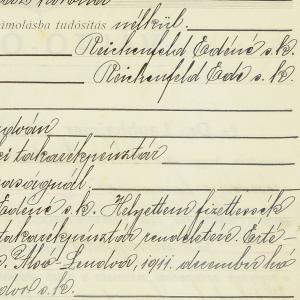 számolásba tudósítás nélkül.
Reichenfeld Edéné s.k.
Reichenfeld Ede s.k.
takarékpénztár
Edéné s.k. Helyettem fizettessék
takarékpénztár rendeletére. Érté
Alsó-Lendva, 1911. december hó
s.k.